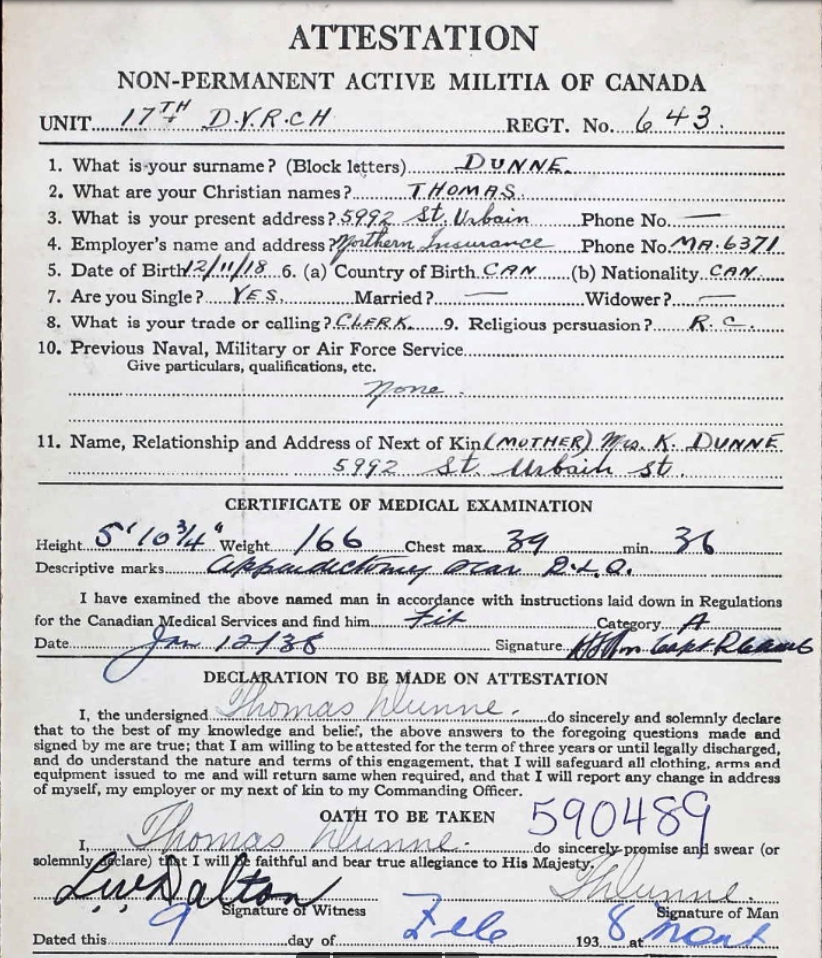 ATTESTATION
NON-PERMANENT ACTIVE MILITIA OF CANADA
UNIT 17TH D.Y.R.C.H REGT. No. 643.
1. What is your surname? (Block letters) DUNNE.
2. What are your Christian names? THOMAS.
3. What is your present address? 5992 St. Urbain Phone No. —
4. Employer's name and address? Northern Insurance Phone No. MA. 6371
5. Date of Birth 12/11/18 6. (a) Country of Birth CAN (b) Nationality CAN.
7. Are you Single? YES. Married? — Widower? —
8. What is your trade or calling? CLERK. 9. Religious persuasion? R. C.
10. Previous Naval, Military or Air Force Service
Give particulars, qualifications, etc.
None.
11. Name, Relationship and Address of Next of Kin (MOTHER) Mrs. K. DUNNE
5992 St. Urbain St.
CERTIFICATE OF MEDICAL EXAMINATION
Height 5' 10 3/4" Weight 166 Chest max. 39 min. 36
Descriptive marks Appendictomy scar
I have examined the above named man in accordance with instructions laid down in Regulations
for the Canadian Medical Services and find him Fit Category A
Date Jan 12/38 Signature Capt
DECLARATION TO BE MADE ON ATTESTATION
I, the undersigned Thomas Dunne. do sincerely and solemnly declare
that to the best of my knowledge and belief, the above answers to the foregoing questions made and
signed by me are true; that I am willing to be attested for the term of three years or until legally discharged,
and do understand the nature and terms of this engagement, that I will safeguard all clothing, arms and
equipment issued to me and will return same when required, and that I will report any change in address
of myself, my employer or my next of kin to my Commanding Officer.
OATH TO BE TAKEN 590489
I, Thomas Dunne. do sincerely promise and swear (or
solemnly declare) that I will be faithful and bear true allegiance to His Majesty.
L.W. Dalton T Dunne.
Signature of Witness Signature of Man
Dated this 9 day of Feb 1938 at Mont